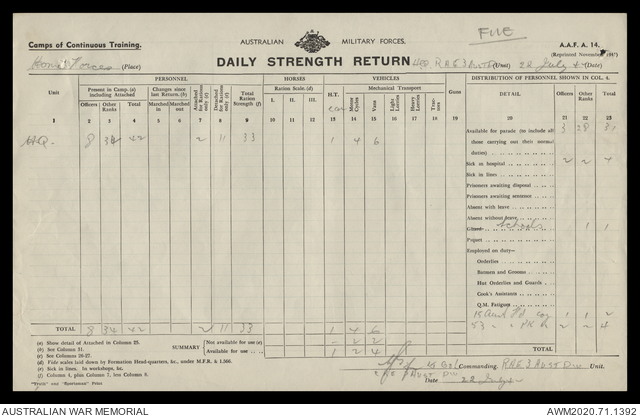 FILE
Camps of Continuous Training.
AUSTRALIAN MILITARY FORCES.
A.A.F. A. 14.
(Reprinted November
Forces (Place)
DAILY STRENGTH RETURN
HQ. RAE 3 AUST DIV (Unit) 22 July (Date)
PERSONNEL
HORSES
VEHICLES
Guns
DISTRIBUTION OF PERSONNEL SHOWN IN COL. 4.
Present in Camp. (a) including Attached
Changes since last Return. (b)
Attached for Rations only (c)
Detached for Rations only (e)
Total Ration Strength (f)
Ration Scale. (d)
H.T.
Mechanical Transport
DETAIL
Officers
Other Ranks
Total
Officers Other Ranks Total
Marched in
Marched out
I. II. III.
car
Motor Cycles
Vans
Light Lorries
Heavy Lorries
Tractors
1 2 3 4 5 6 7 8 9 10 11 12 13 14 15 16 17 18 19 20 21 22 23
H.Q. 8 34 42 2 11 33 1 4 6
Available for parade (to include all 3 28 31
those carrying out their normal
duties)
Sick in hospital 2 2 4
Sick in lines
Prisoners awaiting disposal
Prisoners awaiting sentence
Absent with leave
Absent without leave
Guard Schools 1 1
Piquet
Employed on duty—
Orderlies
Batmen and Grooms
Hut Orderlies and Guards
Cook's Assistants
Q.M. Fatigues
15 Aust Fd Coy 1 1 2
2 2 4
TOTAL 8 34 42 2 11 33 1 4 6
(a) Show detail of Attached in Column 23.
(b) See Column 21.
(c) See Columns 20-27.
(d) Fide scales laid down by Formation Head-quarters, &c., under M.F.R. & I.366.
(e) Sick in lines. In workshops, &c.
(f) Column 4, plus Column 7, less Column 8.
SUMMARY
Not available for use (e) - 2 2
Available for use 1 2 4
TOTAL
Commanding. RAE 3 AUST DIV Unit.
RAE 3 AUST DIV
Date 22 July
AUSTRALIAN WAR MEMORIAL
AWM2020.71.1392